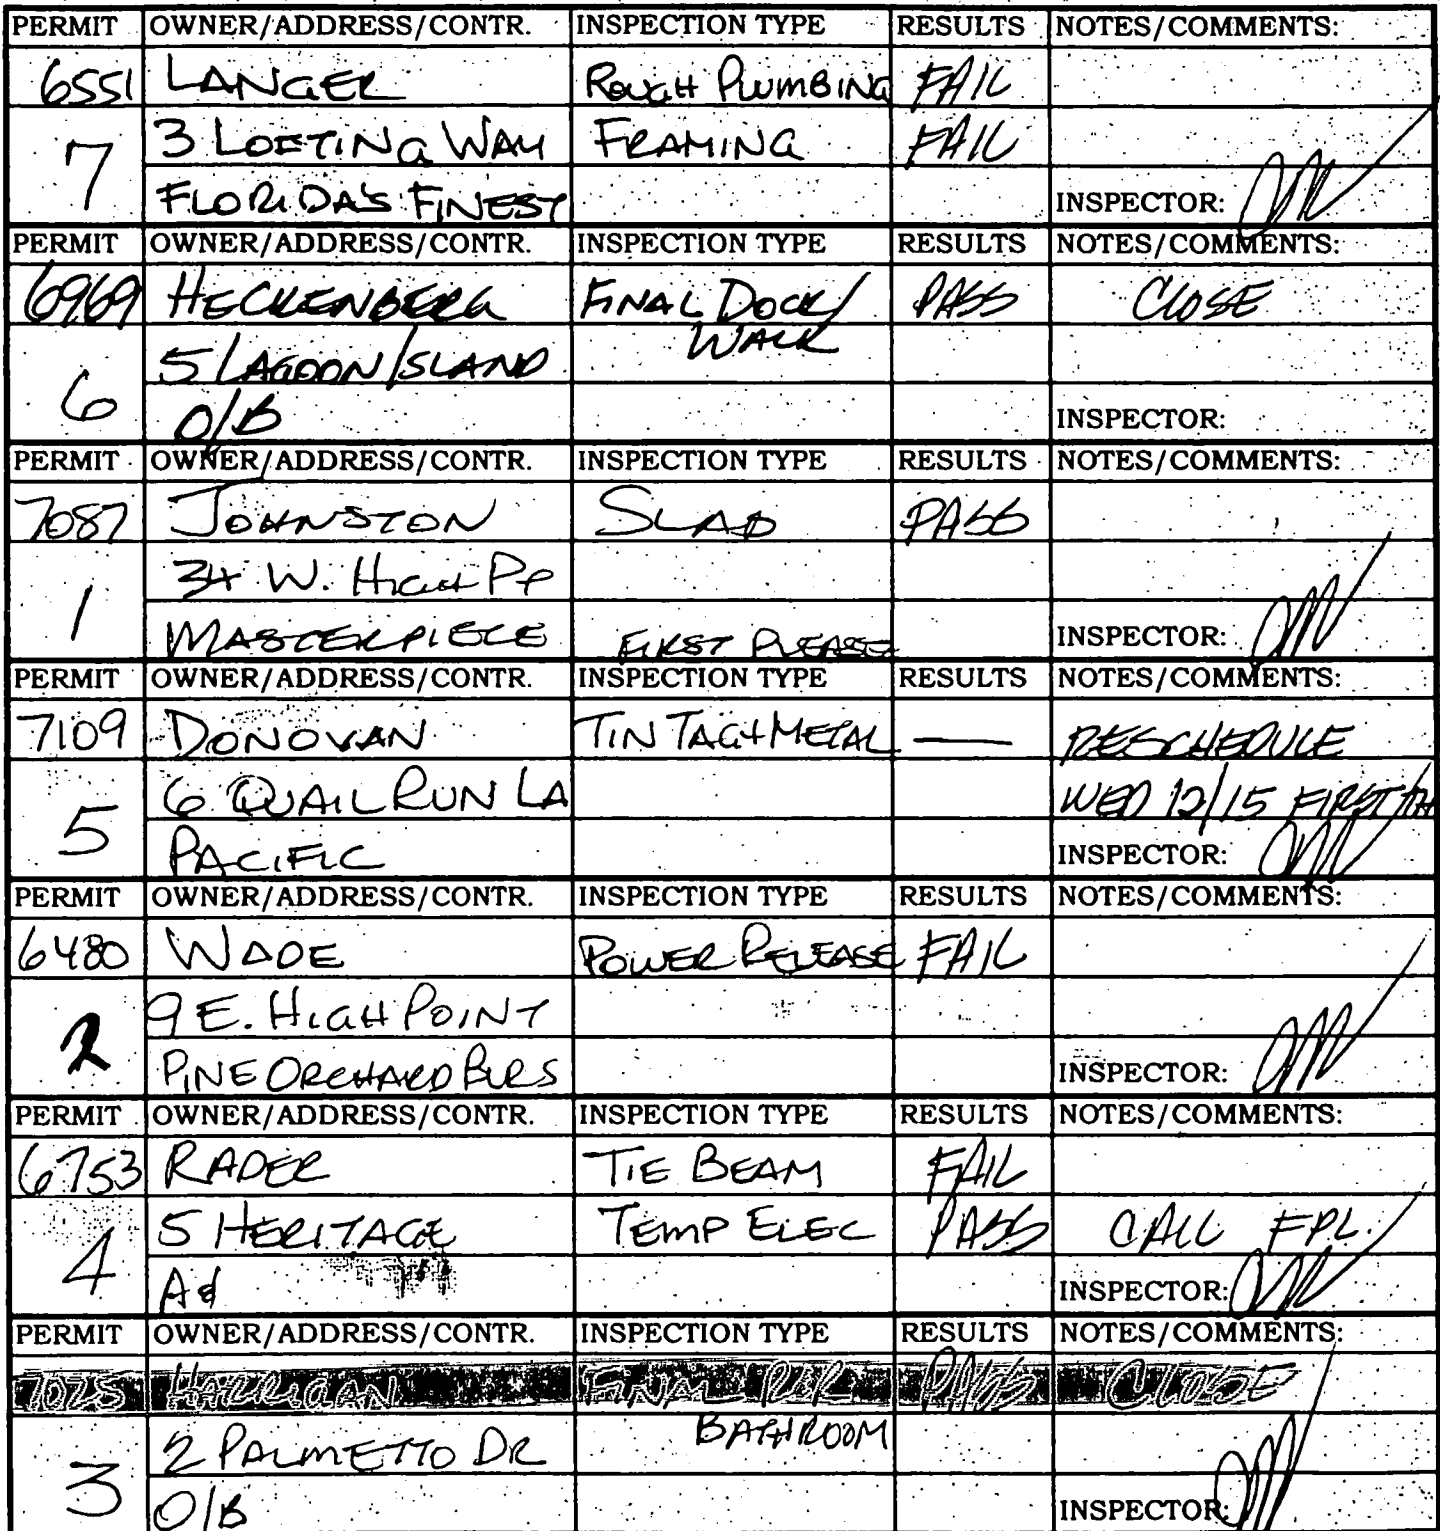 PERMIT OWNER/ADDRESS/CONTR. INSPECTION TYPE RESULTS NOTES/COMMENTS:
6551 LANGER ROUGH PLUMBING FAIL
7 3 LOFTING WAY FRAMING FAIL
FLORIDA'S FINEST INSPECTOR:
PERMIT OWNER/ADDRESS/CONTR. INSPECTION TYPE RESULTS NOTES/COMMENTS:
6969 HECKENBERG FINAL DOCK/ PASS CLOSE
WALK
6 5 LAGOON ISLAND
O/B INSPECTOR:
PERMIT OWNER/ADDRESS/CONTR. INSPECTION TYPE RESULTS NOTES/COMMENTS:
7087 JOHNSTON SLAB PASS
1 34 W. HIGH PT
MASTERPIECE FIRST PLEASE INSPECTOR:
PERMIT OWNER/ADDRESS/CONTR. INSPECTION TYPE RESULTS NOTES/COMMENTS:
7109 DONOVAN TIN TAG+METAL — RESCHEDULE
5 6 QUAIL RUN LA WED 12/15 FIRST AM
PACIFIC INSPECTOR:
PERMIT OWNER/ADDRESS/CONTR. INSPECTION TYPE RESULTS NOTES/COMMENTS:
6480 WADE POWER RELEASE FAIL
2 9 E. HIGH POINT
PINE ORCHARD BLRS INSPECTOR:
PERMIT OWNER/ADDRESS/CONTR. INSPECTION TYPE RESULTS NOTES/COMMENTS:
6753 RADER TIE BEAM FAIL
4 5 HERITAGE TEMP ELEC PASS CALL FPL.
INSPECTOR:
PERMIT OWNER/ADDRESS/CONTR. INSPECTION TYPE RESULTS NOTES/COMMENTS:
7025 HARRIGAN FINAL PASS CLOSE
BATHROOM
3 2 PALMETTO DR
O/B INSPECTOR: